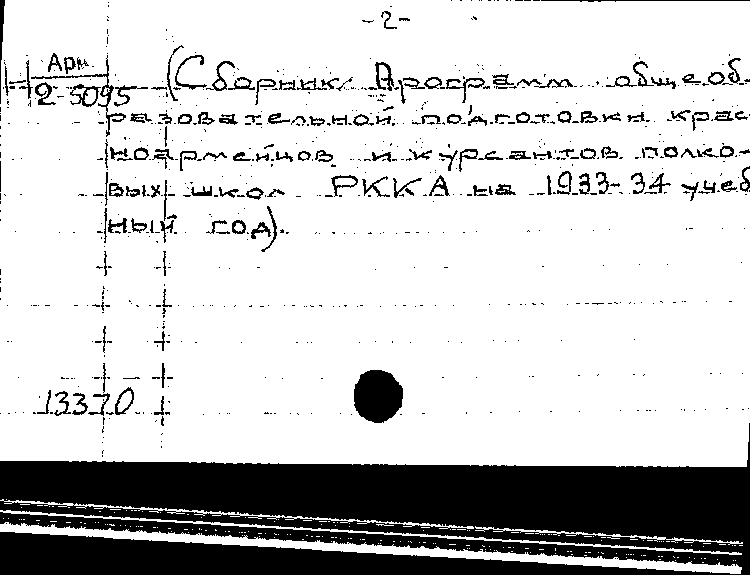 -2-
Арм.
2-5095
(Сборник Программ общеоб-
разовательной подготовки крас
ноармейцов и курсантов полко-
вых школ РККА на 1933-34 учеб
ный год).
13370